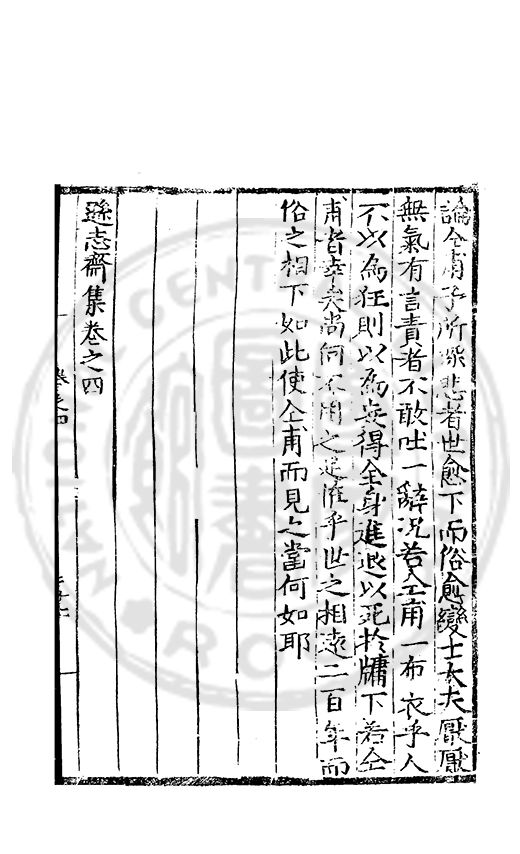 論仝甫予所深悲者世愈下而俗愈變士大夫厭厭
無氣有言責者不敢吐一辭況若仝甫一布衣乎人
不以為狂則以為妄得全身進退以死於牖下若仝
甫者幸矣尚何不用之足憾乎世之相遠二百年而
俗之相下如此使仝甫而見之當何如耶
遜志齋集卷之四
卷之四